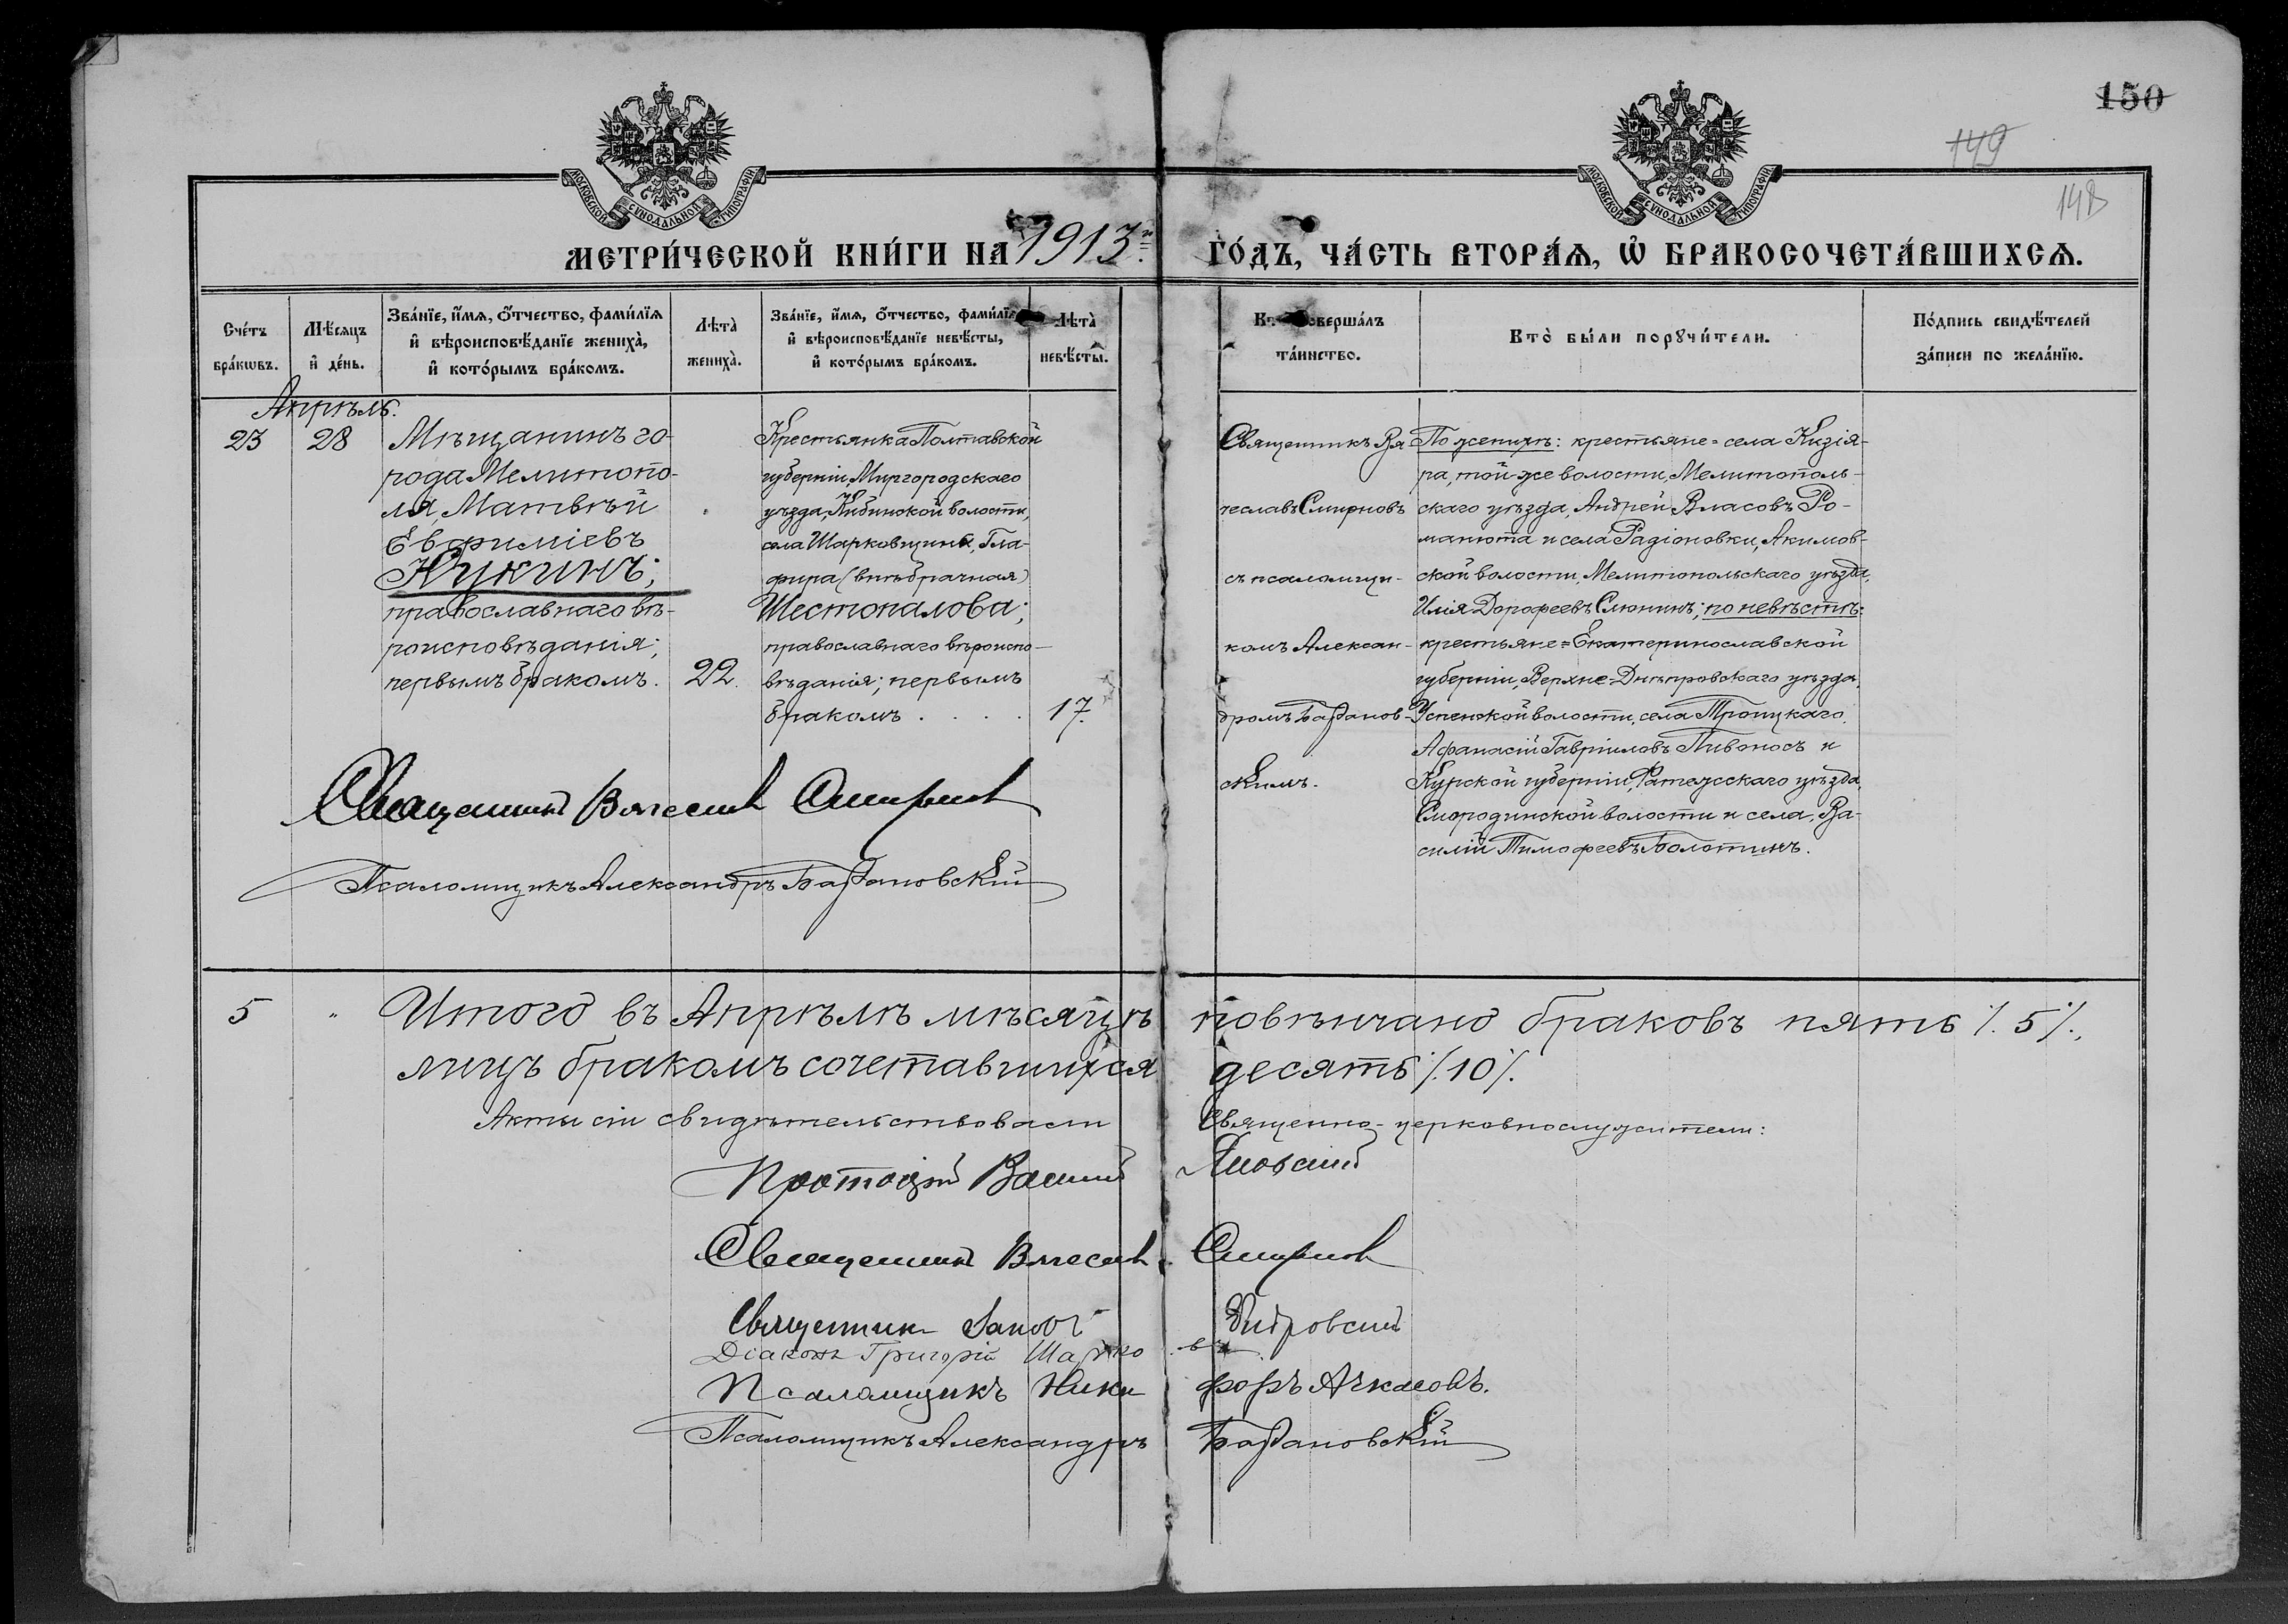 150
149
148
МОСКОВСКОЙ СУНОДАЛЬНОЙ ТИПОГРАФІИ
МОСКОВСКОЙ СУНОДАЛЬНОЙ ТИПОГРАФІИ
МЕТРИ́ЧЕСКОЙ КНИ́ГИ НА 1913й ГО́ДЪ, ЧА́СТЬ ВТОРА́Ѧ, Ѽ БРАКОСОЧЕТА́ВШИХСѦ.
Сче́тъ бра́кѡвъ.
Мѣ́сяцъ и҆ де́нь.
Зва́нїе, и҆́мѧ, ѻ҆́тчество, фами́лїѧ
и҆ вѣроисповѣ́данїе жениха̀,
и҆ кото́рымъ бра́комъ.
Лѣта̀ жениха̀.
Зва́нїе, и҆́мѧ, ѻ҆́тчество, фами́лїѧ
и҆ вѣроисповѣ́данїе невѣ́сты,
и҆ кото́рымъ бра́комъ.
Лѣта̀ невѣ́сты.
совершáлъ
та́инство.
Кто̀ бы́ли порꙋчи́тели.
По́дпись свидѣ́телей
за́писи по жела́нїю.
Апрѣль.
23
28
Мѣщанинъ го-
рода Мелитопо-
ля, Матвѣй
Евфиміевъ
Кукинъ;
православнаго вѣ-
роисповѣданія;
первымъ бракомъ.
22.
Крестьянка Полтавской
губерніи, Миргородскаго
уѣзда, Кибинской волости,
села Шарковщины, Гла-
фира (внѣбрачная)
Шестопалова;
православнаго вѣроиспо-
вѣданія; первымъ
бракомъ . . . .
17.
Священникъ Вя-
чеславъ Смирновъ
съ псаломщи-
комъ Алексан-
дромъ Баждановскимъ.
По женихѣ: крестьяне = села Кизія-
ра, той-же волости, Мелитополь-
скаго уѣзда, Андрей Власовъ Ро-
манюта и села Радіоновки, Акимов-
ской волости, Мелитопольскаго уѣзда,
Илія Дорофеевъ Слюнинъ; по невѣстѣ:
крестьяне = Екатеринославской
губерніи, Верхне-Днѣпровскаго уѣзда,
Успенской волости, села Троицкаго,
Афанасій Гавріиловъ Пивоносъ и
Курской губерніи, Фатежскаго уѣзда,
Смородинской волости и села, Ва-
силій Тимофеевъ Болотинъ.
Священникъ Вячеславъ Смирновъ
Псаломщикъ Александръ Баждановскій
5 " Итого въ Апрѣлѣ мѣсяцѣ повѣнчано браковъ пять ./. 5 ./.,
лицъ бракомъ сочетавшихся десять ./. 10 ./.
Акты сіи свидѣтельствовали Священно-церковнослужители:
Протоіерей Василій Яновскій
Священникъ Вячеславъ Смирновъ
Священникъ Іаковъ
Діаконъ Григорій Шарковъ
Псаломщикъ Никифоръ Ачкасовъ.
Псаломщикъ Александръ Баждановскій